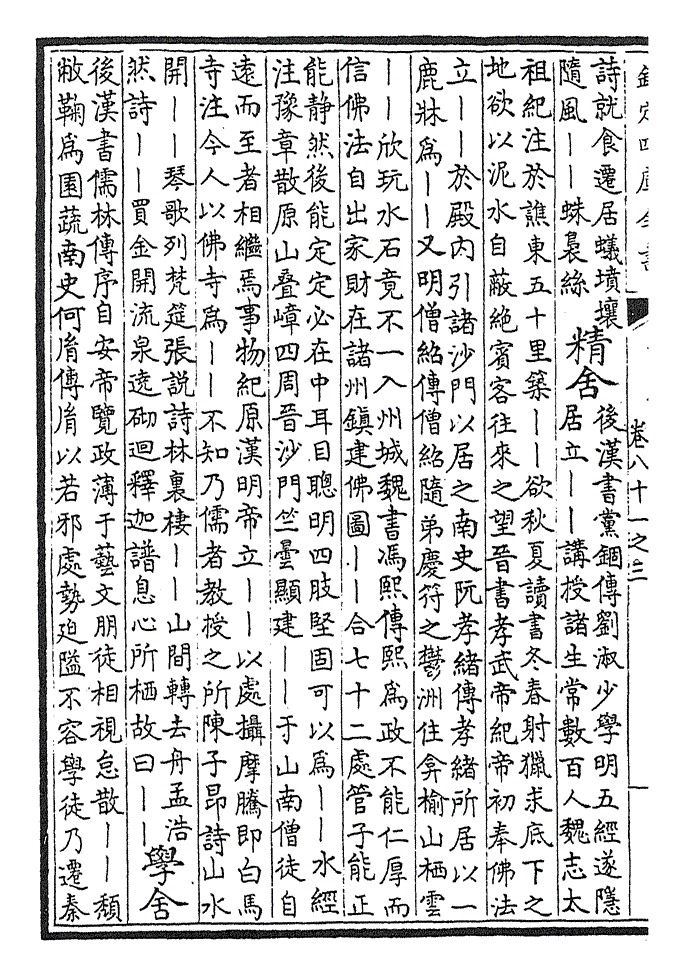 欽定四庫全書
卷八十一之三
詩就食遷居蟻墳壤
隨風丨丨蛛裊絲
精舍
後漢書黨錮傳劉淑少學明五經遂隱
居立丨丨講授諸生常數百人魏志太
祖紀注於譙東五十里築丨丨欲秋夏讀書冬春射獵求底下之
地欲以泥水自蔽絶賓客往來之望晉書孝武帝紀帝初奉佛法
立丨丨於殿内引諸沙門以居之南史阮孝緒傳孝緒所居以一
鹿牀為丨丨又明僧紹傳僧紹隨弟慶符之鬱洲住弇榆山栖雲
丨丨欣玩水石竟不一入州城魏書馮熙傳熙為政不能仁厚而
信佛法自出家財在諸州鎮建佛圖丨丨合七十二處管子能正
能静然後能定定必在中耳目聰明四肢堅固可以為丨丨水經
注豫章散原山疊嶂四周晉沙門竺曇顯建丨丨于山南僧徒自
遠而至者相繼焉事物紀原漢明帝立丨丨以處攝摩騰即白馬
寺注今人以佛寺為丨丨不知乃儒者教授之所陳子昂詩山水
開丨丨琴歌列梵筵張説詩林裏棲丨丨山間轉去舟孟浩
然詩丨丨買金開流泉遶砌迴釋迦譜息心所栖故曰丨丨
學舍
後漢書儒林傳序自安帝覽政薄于藝文朋徒相視怠散丨丨頹
敝鞠為園蔬南史何胤傳胤以若邪處勢迫隘不容學徒乃遷秦